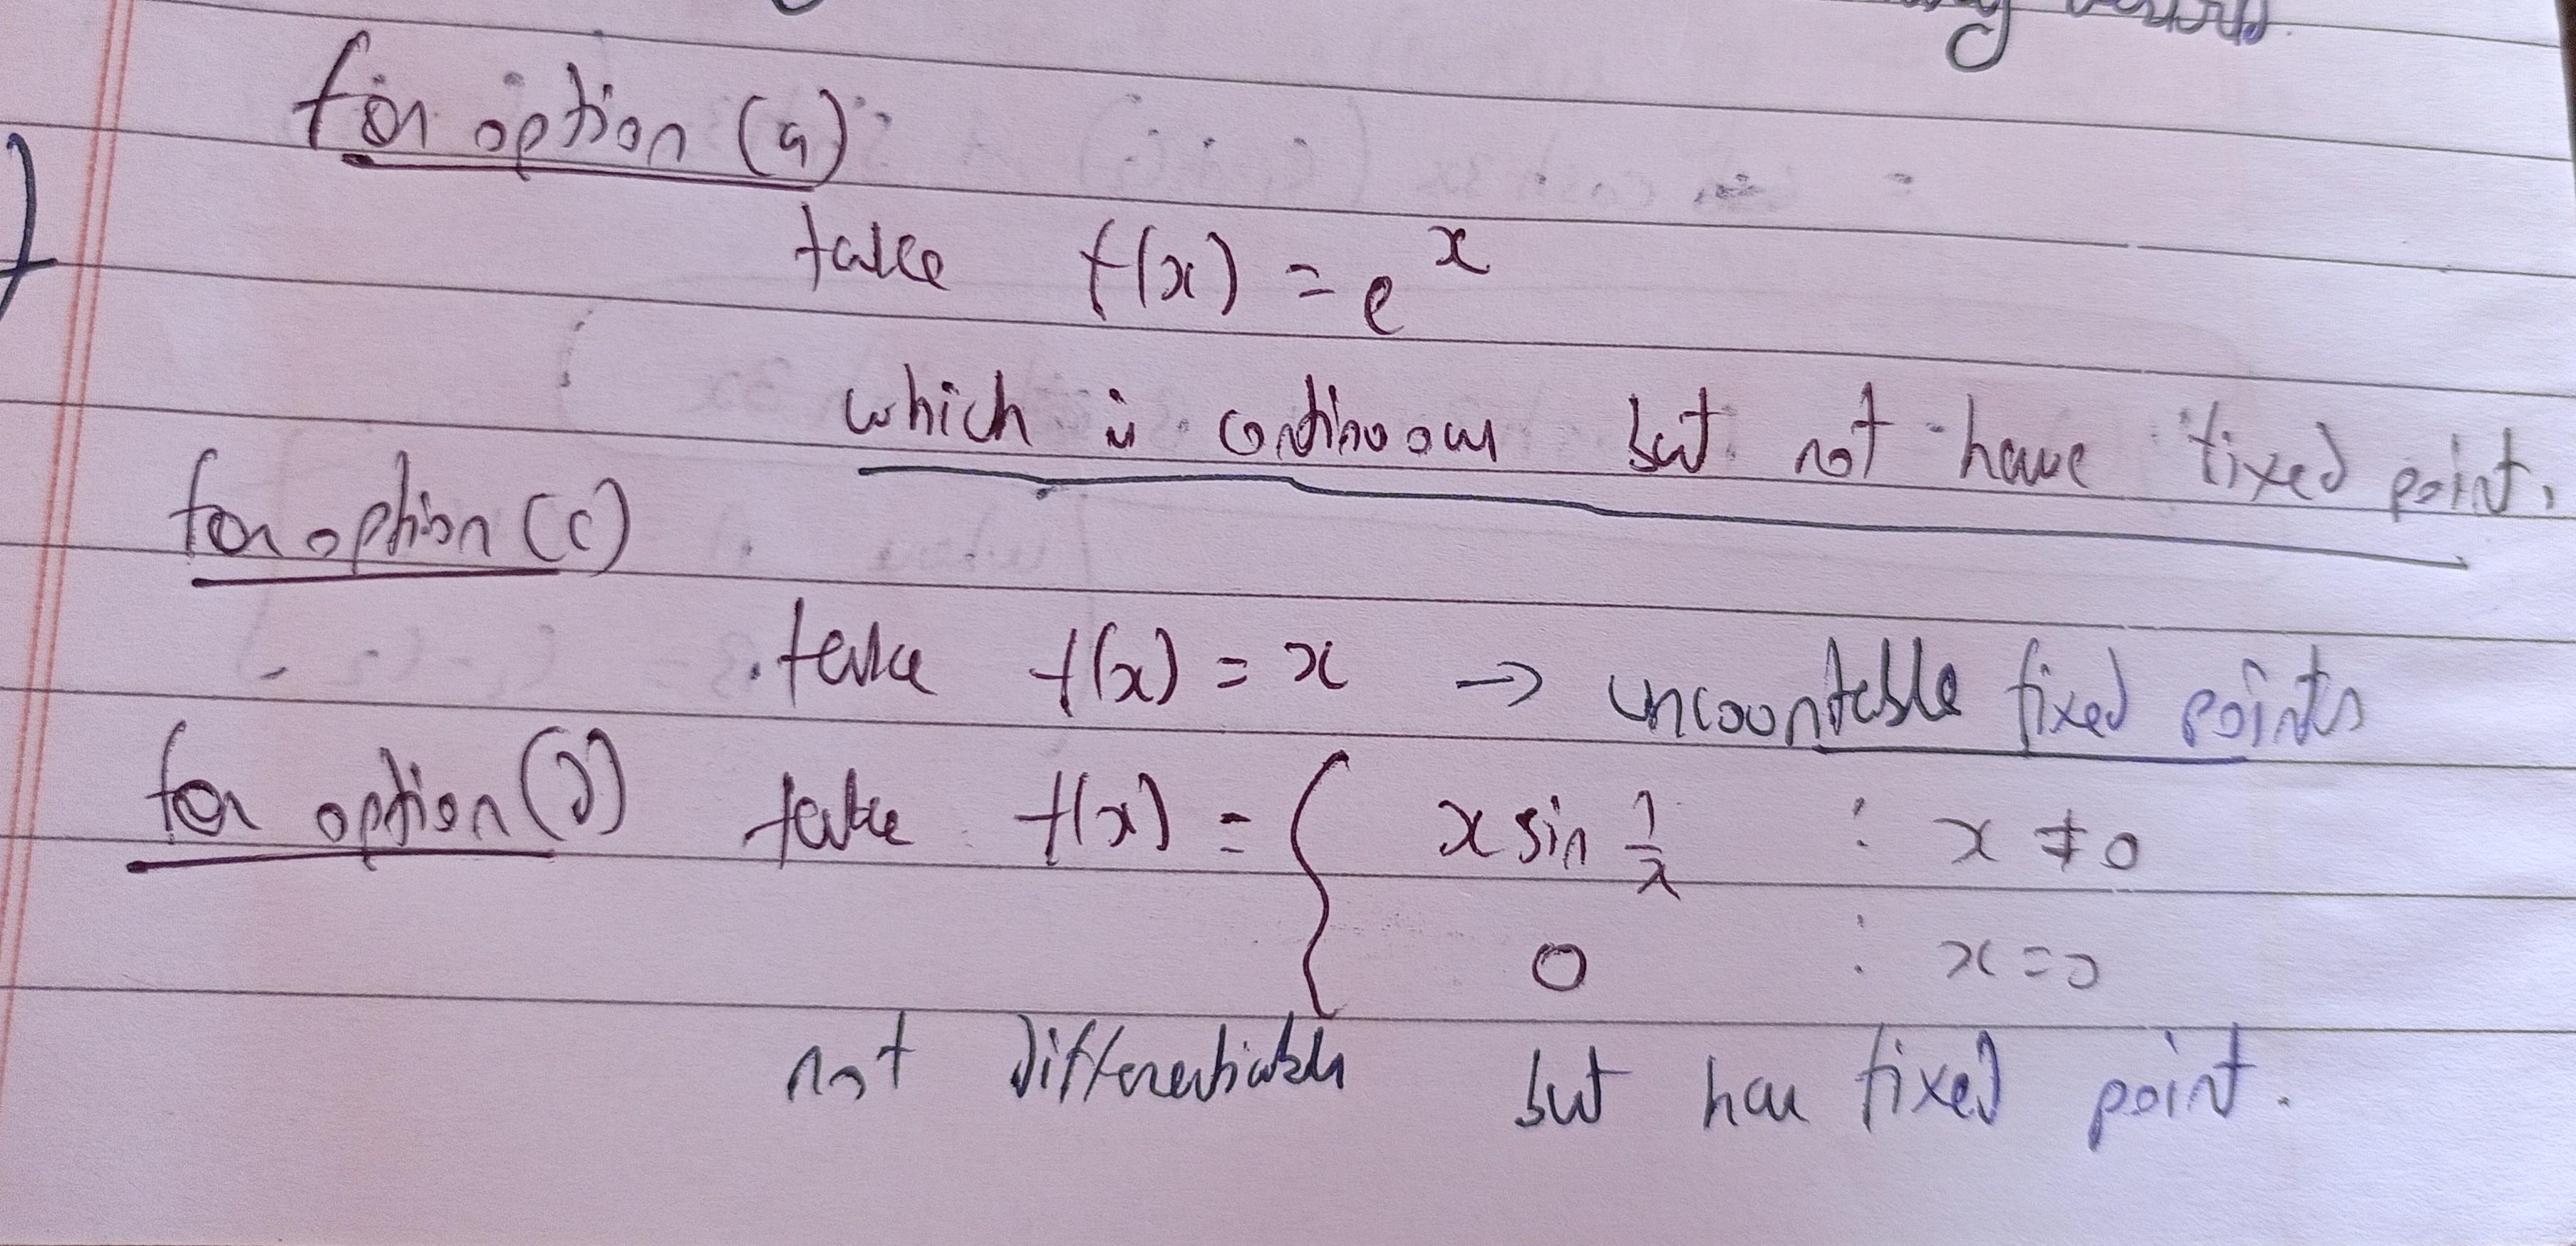 for option (a)
take f(x) = e^x
which is continuous but not have fixed point.
for option (c)
take f(x) = x → uncountable fixed points
for option (d) take f(x) = { x sin 1/x : x ≠ 0
0 : x = 0
not differentiable but has fixed point.